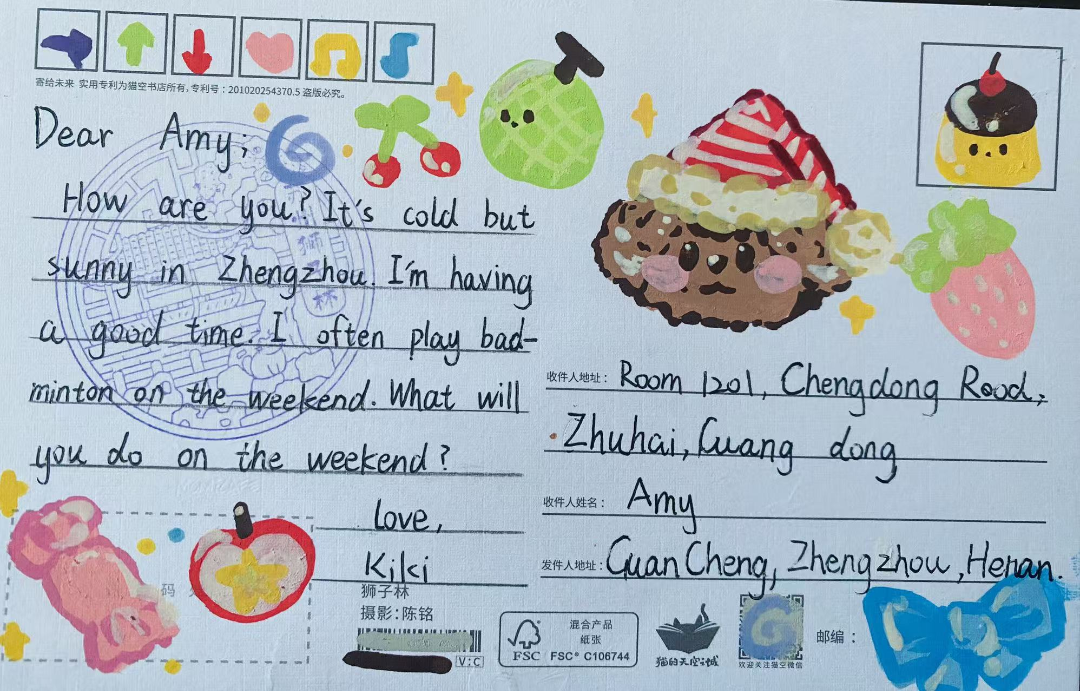 寄给未来 实用专利为猫空书店所有,专利号：201020254370.5 盗版必究。
Dear Amy;
How are you? It's cold but
sunny in Zhengzhou. I'm having
a good time. I often play bad-
minton on the weekend. What will
you do on the weekend?
Love,
Kiki
收件人地址： Room 1201, Chengdong Road,
Zhuhai, Guang dong
收件人姓名： Amy
发件人地址： GuanCheng, Zhengzhou, Henan.
狮子林
码
狮子林
摄影:陈铭
V:C
FSC
混合产品
纸张
FSC® C106744
猫的天空之城
欢迎关注猫空微信
邮编：